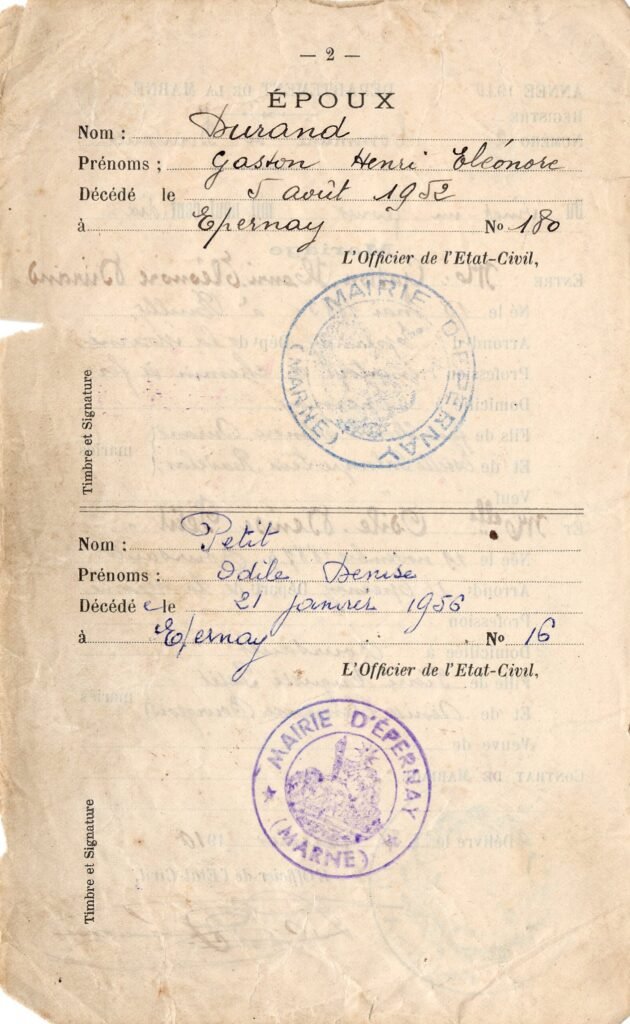 — 2 —
ÉPOUX
Nom : Durand
Prénoms : Gaston Henri Eléonore
Décédé le 5 août 1952
à Epernay No 180
L'Officier de l'Etat-Civil,
MAIRIE D'EPERNAY
(MARNE)
Timbre et Signature
Nom : Petit
Prénoms : Odile Denise
Décédé e le 21 janvier 1956
à Epernay No 16
L'Officier de l'Etat-Civil,
MAIRIE D'ÉPERNAY
(MARNE)
Timbre et Signature